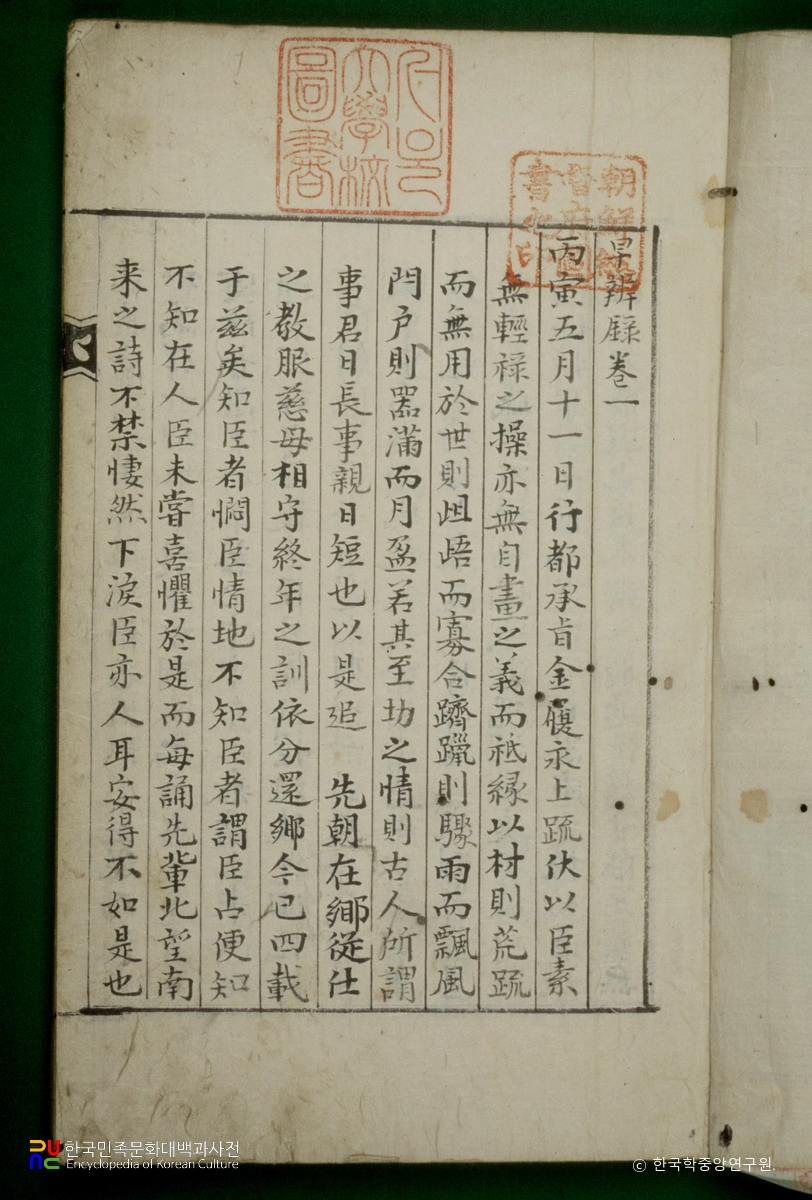 早辨錄卷一
丙寅五月十一日行都承旨金履永上疏伏以臣素
無輕祿之操亦無自畫之義而祗緣以材則荒疏
而無用於世則齟齬而寡合躋躐則驟雨而飄風
門戶則器滿而月盈若其至切之情則古人所謂
事君日長事親日短也以是追 先朝在鄉從仕
之教服慈母相守終年之訓依分還鄉今已四載
于茲矣知臣者憫臣情地不知臣者謂臣占便知
不知在人臣未嘗喜懼於是而每誦先輩北望南
来之詩不禁悽然下淚臣亦人耳安得不如是也
圖書
大學校
朝鮮總
督府圖
書之印
한국민족문화대백과사전
Encyclopedia of Korean Culture
© 한국학중앙연구원